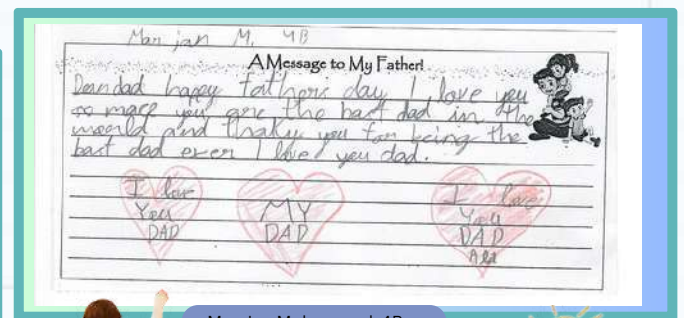 Marjan M. 4B
A Message to My Father!
Dear dad happy father's day I love you
so mace you are the bast dad in the
moorld and thaky you for being the
bast dad ever I love you dad.
I love
You
DAD
MY
DAD
I love
You
DAD